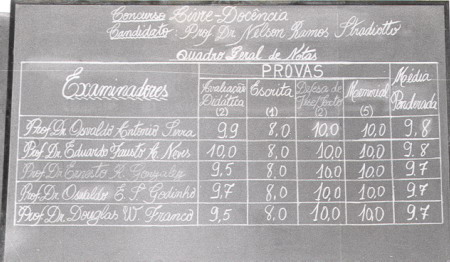 Concurso Livre-Docência
Candidato: Prof. Dr. Nelson Ramos Stradiotto
Quadro Geral de Notas
Examinadores
PROVAS
Avaliação Didática (2)
Escrita (1)
Defesa de Tese/Texto (2)
Memorial (5)
Média Ponderada
Prof. Dr. Osvaldo Antonio Serra 9,9 8,0 10,0 10,0 9,8
Prof. Dr. Eduardo Fausto A. Neves 10,0 8,0 10,0 10,0 9.8
Prof. Dr. Ernesto R. Gonzalez 9,5 8,0 10,0 10,0 9.7
Prof. Dr. Oswaldo E. S. Godinho 9,7 8,0 10,0 10,0 9.7
Prof. Dr. Douglas W. Franco 9,5 8,0 10,0 10,0 9.7